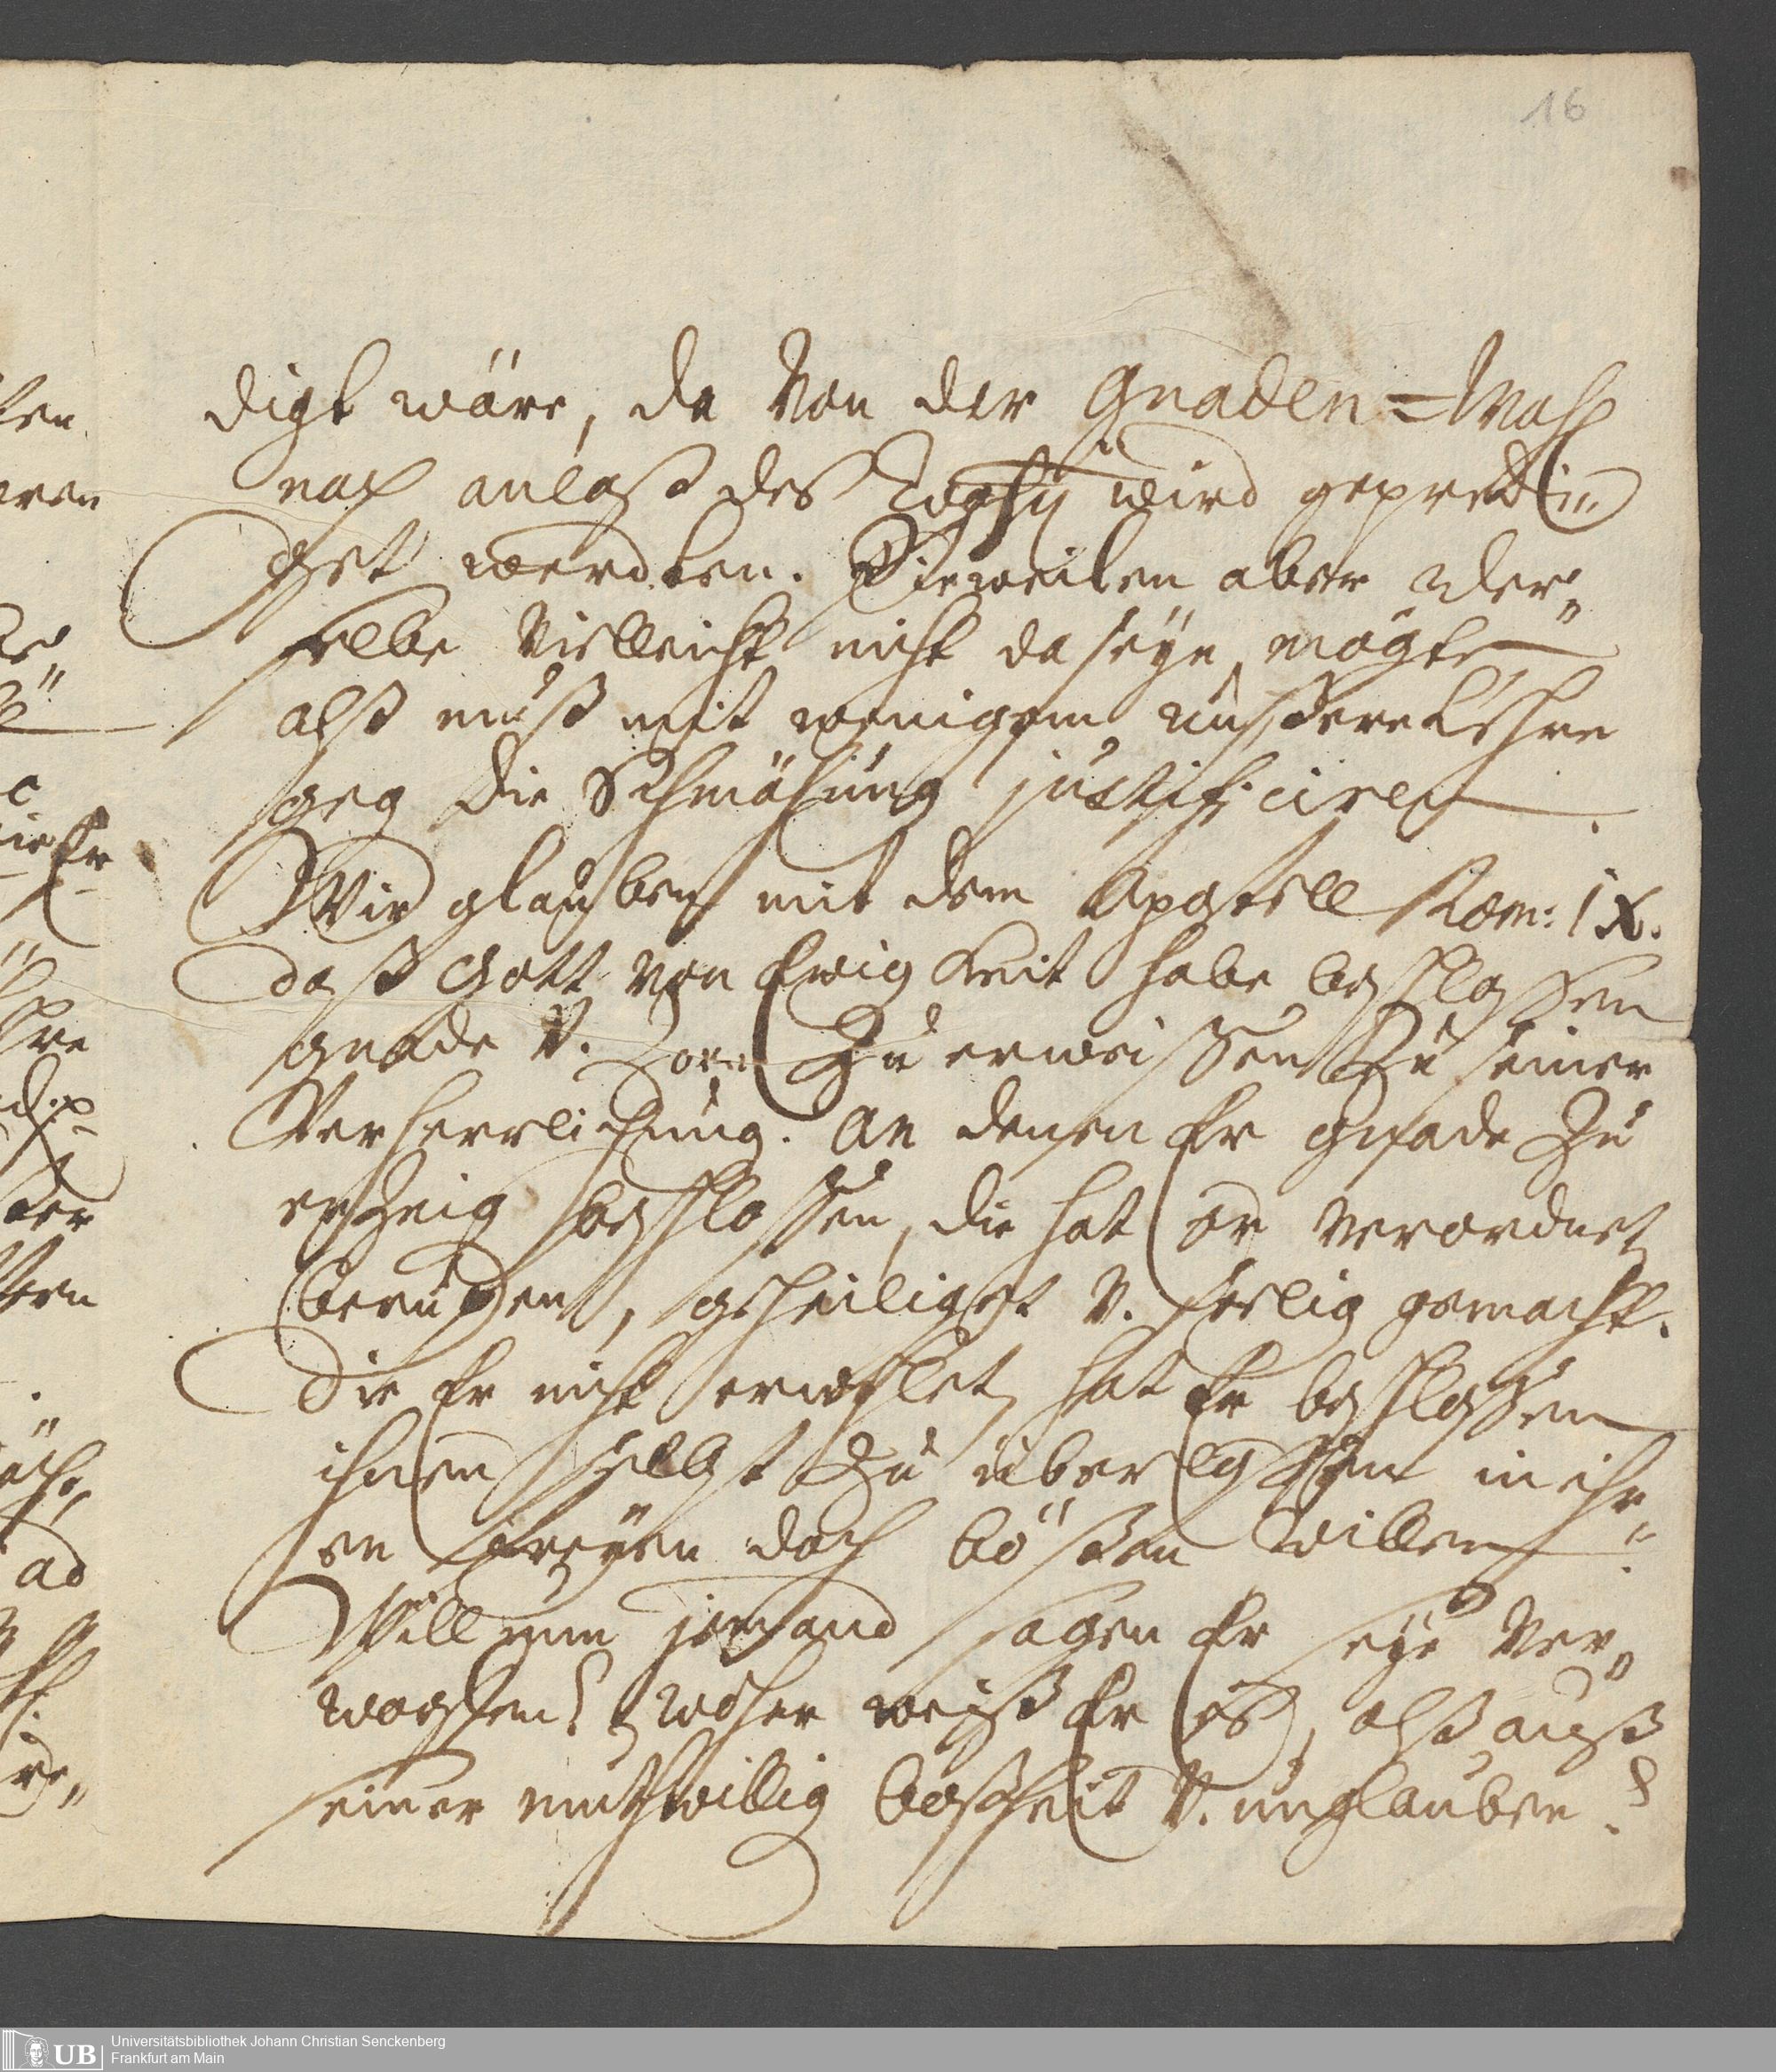 16
digt wäre, da Von der Gnaden=Wahl
nach anlaß des Textij wird gepredi„
get werden. Dieweilen aber der„
selbe Vielleicht nicht da seyn mögte
alß muß mit wenigem unsere Lehre
geg die Schmähung justificiren.
Wir glauben mit dem Apostell Rom: IX.
daß Gott von Ewigkeit habe beschlossen
gnade V. Zorn Zu erweissen Zu seiner
Verherrlichung. An denen Er gnade Zu
erzeig beschlossen, die hat Er verordnet
beruffen, geheiliget V. seelig gemacht.
Die Er nicht erwehlet, hat Er beschlossen
ihnen selbst Zu überlassen in ihr„
en freyen doch bößen Willen.
Will nun jemand sagen Er seye Ver„
worffen? woher weiß Er es, alß auß
seiner muthwillig boßheit V. unglauben?
UB
Universitätsbibliothek Johann Christian Senckenberg
Frankfurt am Main